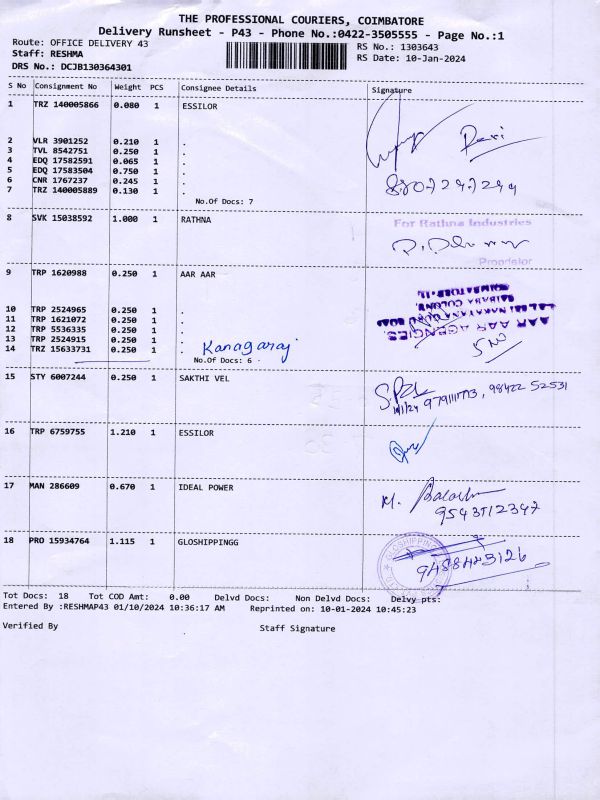 THE PROFESSIONAL COURIERS, COIMBATORE
Delivery Runsheet - P43 - Phone No.:0422-3505555 - Page No.:1
Route: OFFICE DELIVERY 43
RS No.: 1303643
Staff: RESHMA
RS Date: 10-Jan-2024
DRS No.: DCJB130364301
S No Consignment No Weight PCS Consignee Details Signature
1 TRZ 140005866 0.080 1 ESSILOR
Ravi
2 VLR 3901252 0.210 1 .
3 TVL 8542751 0.250 1 .
4 EDQ 17582591 0.065 1 .
5 EDQ 17583504 0.750 1 .
6 CNR 1767237 0.245 1 .
7 TRZ 140005889 0.130 1 .
No.Of Docs: 7
8 SVK 15038592 1.000 1 RATHNA
For Rathna Industries
Proprietor
9 TRP 1620988 0.250 1 AAR AAR
10 TRP 2524965 0.250 1 .
11 TRP 1621072 0.250 1 .
12 TRP 5536335 0.250 1 .
13 TRP 2524915 0.250 1 .
14 TRZ 15633731 0.250 1 . Kanagaraj
No.Of Docs: 6
AAR AAR AGENCIES
SAIBABA COLONY,
COIMBATORE-11.
15 STY 6007244 0.250 1 SAKTHI VEL
10/1/24 9791111713, 98422 52531
16 TRP 6759755 1.210 1 ESSILOR
17 MAN 286609 0.670 1 IDEAL POWER
9543712347
18 PRO 15934764 1.115 1 GLOSHIPPINGG
GLOSHIPPING
9488443126
Tot Docs: 18 Tot COD Amt: 0.00 Delvd Docs: Non Delvd Docs: Delvy pts:
Entered By :RESHMAP43 01/10/2024 10:36:17 AM Reprinted on: 10-01-2024 10:45:23
Verified By Staff Signature